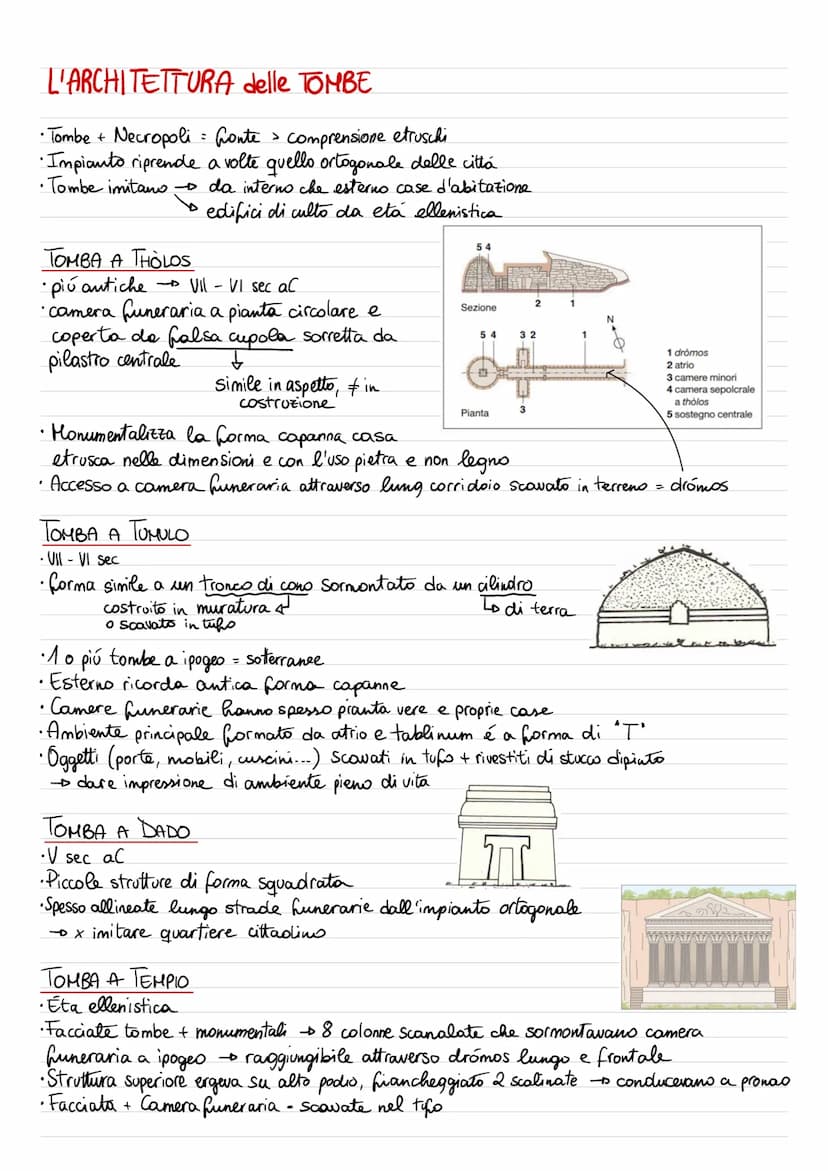 L'ARCHITETTURA delle TOMBE
· Tombe + Necropoli = fonte > comprensione etruschi
· Impianto riprende a volte quello ortogonale delle cittá
· Tombe imitano → da interno che esterno case d'abitazione
↘ edifici di culto da etá ellenistica
TOMBA A THÒLOS
· piú antiche → VII - VI sec aC
· camera funeraria a pianta circolare e
coperta da falsa cupola sorretta da
pilastro centrale ↓
simile in aspetto, ≠ in
costruzione
5 4
2 1
Sezione
N
5 4 3 2 1
3
Pianta
1 drómos
2 atrio
3 camere minori
4 camera sepolcrale
a thòlos
5 sostegno centrale
· Monumentalizza la forma capanna casa
etrusca nelle dimensioni e con l'uso pietra e non legno
· Accesso a camera funeraria attraverso lung corridoio scavato in terreno = drómos
TOMBA A TUMULO
· VII - VI sec
· forma simile a un tronco di cono sormontato da un cilindro
costruito in muratura ↲ ↳ di terra
o scavato in tufo
· 1 o piú tombe a ipogeo = soterranee
· Esterno ricorda antica forma capanne
· Camere funerarie hanno spesso pianta vere e proprie case
· Ambiente principale formato da atrio e tablinum é a forma di "T"
· Oggetti (porte, mobili, cuscini...) scavati in tufo + rivestiti di stucco dipinto
→ dare impressione di ambiente pieno di vita
TOMBA A DADO
· V sec aC
· Piccole strutture di forma squadrata
· Spesso allineate lungo strade funerarie dall'impianto ortogonale
→ x imitare quartiere cittadino
TOMBA A TEMPIO
· Etá ellenistica
· Facciate tombe + monumentali → 8 colonne scanalate che sormontavano camera
funeraria a ipogeo → raggiungibile attraverso drómos lungo e frontale
· Struttura superiore ergeva su alto podio, fiancheggiato 2 scalinate → conducevano a pronao
· Facciata + Camera funeraria - scavate nel tufo